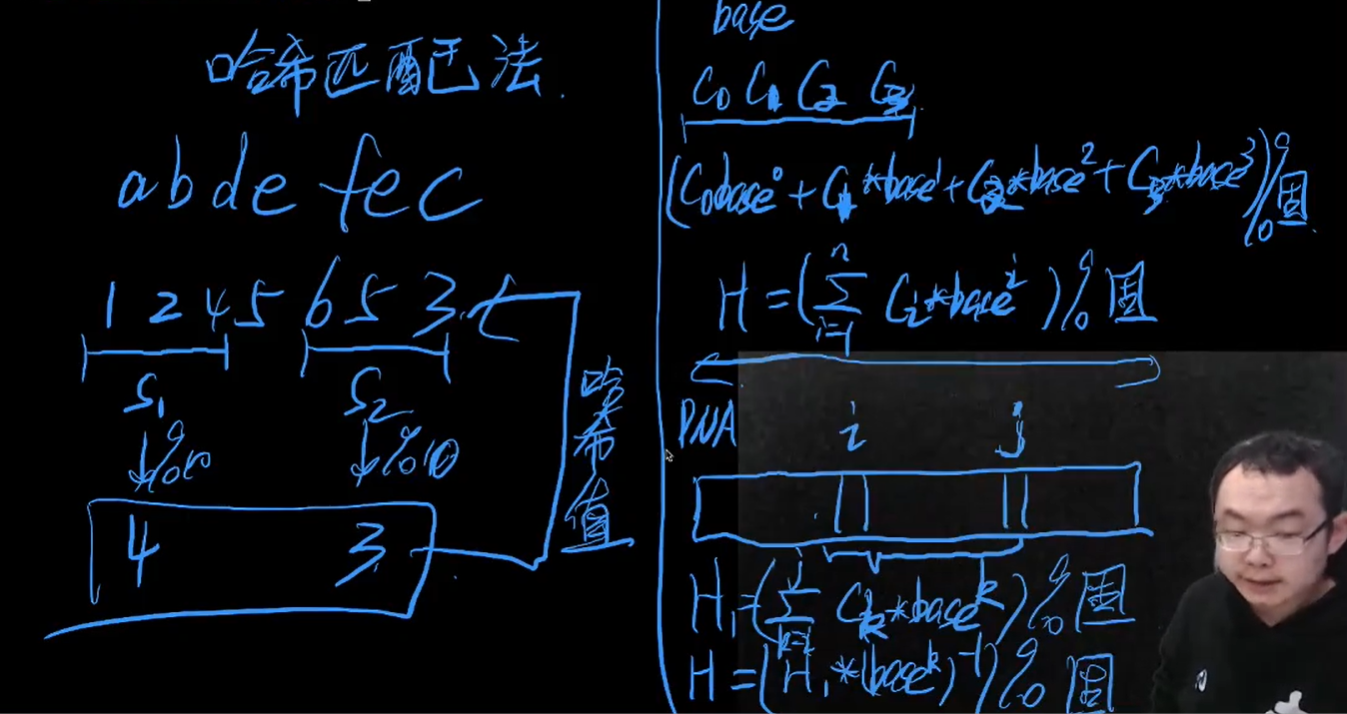 哈希匹配法.
abdefec
1 2 4 5 6 5 3
S₁ S₂
↓%10 ↓%10
4 3
哈希值
base
C₀ C₁ C₂ C₃
(C₀base⁰ + C₁*base¹ + C₂*base² + C₃*base³)%固
H = (∑ⁿᵢ₌₁ Cᵢ*baseⁱ)%固
DNA i j
H₁ = (∑ʲₖ₌ᵢ Cₖ*baseᵏ)%固
H = (H₁*(baseᵏ)⁻¹)%固